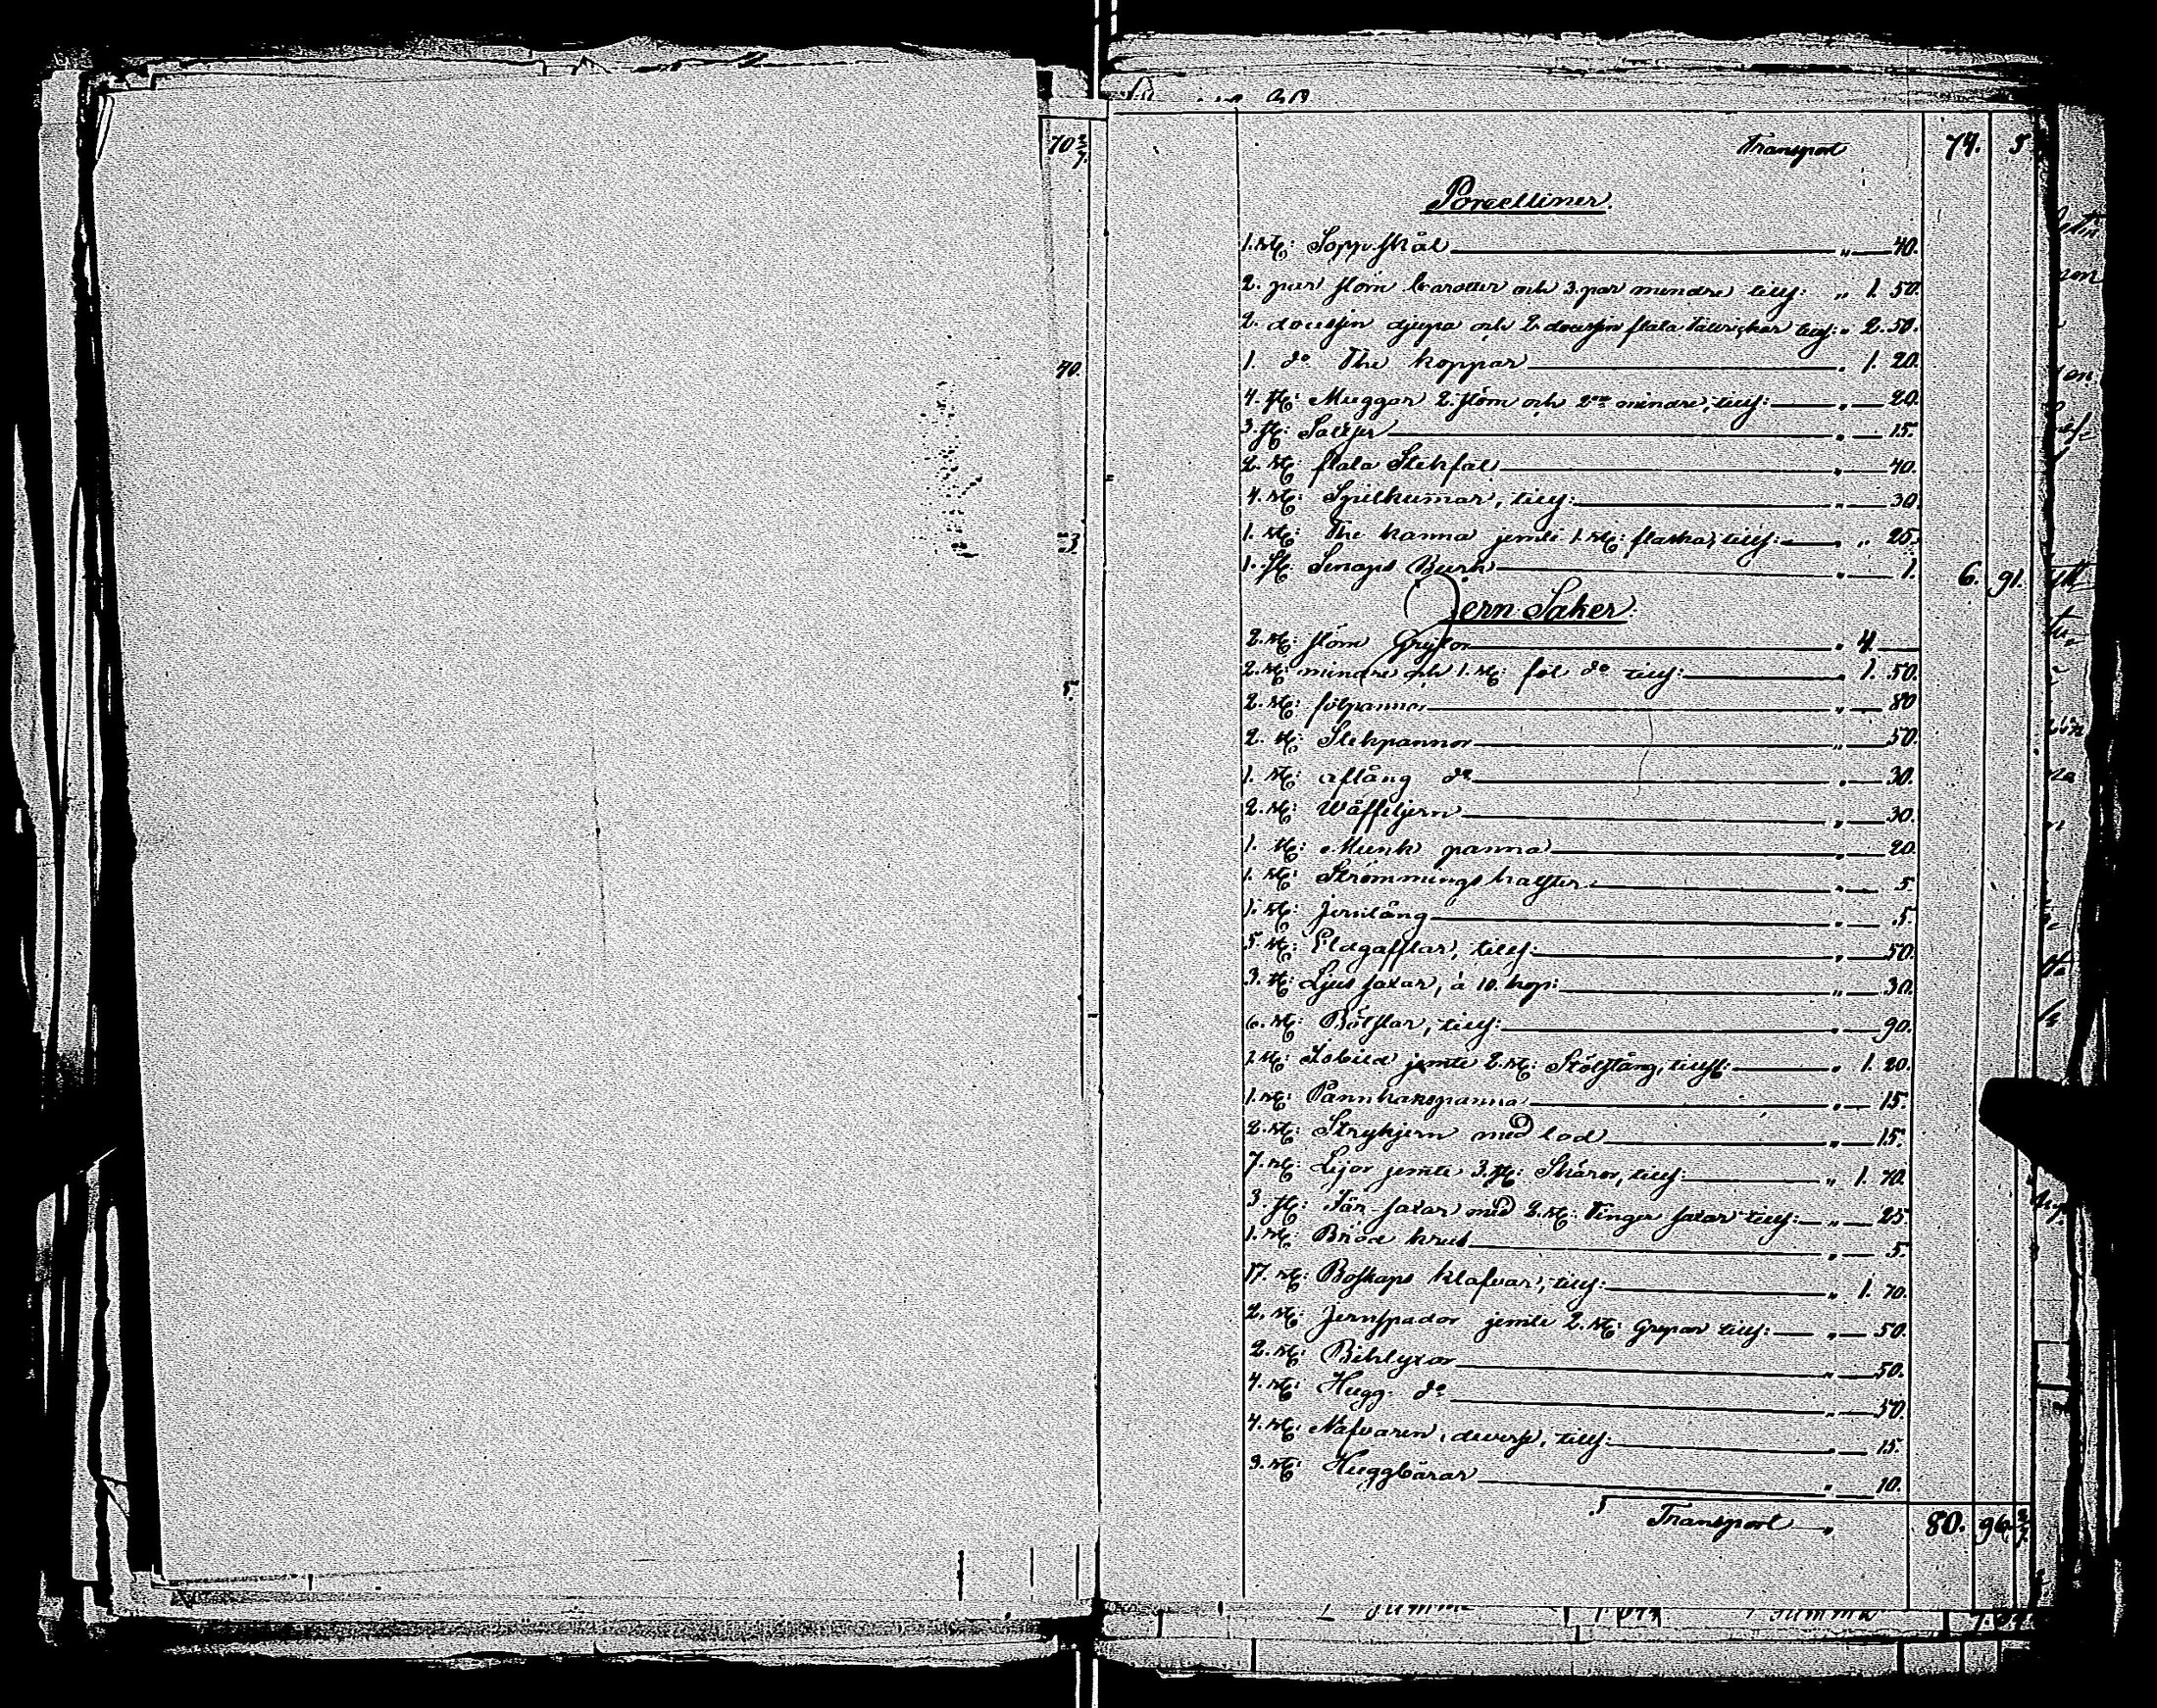 70 2/7
70.
3
5.
Transport 74. 5
Porcelliner.
1. st: Soppskål " 40.
2. par störn karotter och 3. par mindre tills: " 1. 50.
2. doussin djupa och 2 doussin flata Tallrickar tills: " 2. 50.
1. do The koppar " 1. 20.
4. st: Muggar 2. störn och 2ne mindre, tills: " 20.
3. st: Saltser " 15.
2. st flata Stekfat " 40.
4. st: Spilkumar, tills: " 30.
1. st: The kanna jemte 1. st: flaska, tills: " 25.
1. st. Senaps Burk " 1. 6. 91.
Jern Saker.
2. st: störn Grytor " 4.
2. st: mindre och 1. st: fot do tills: " 1. 50.
2. st: fotpannor " 80
2. st: Stekpannor " 50.
1. st: aflång do " 30.
2. st: Wåffeljern " 30.
1. st: Munk panna " 20.
1. st: Strömmings halster " 5.
1. st: jerntång " 5.
5. st: Eldgafflar, tills: " 50.
3. st: Ljus saxar, à 10. kop: " 30.
6. st: Bölstar, tills: " 90.
1. st: Isbill jemte 2. st: tills: " 1. 20.
1. st: Pannkakspanna " 15.
2. st: Strykjern med lod " 15.
7. st: Lijor jemte 3. st: Skäror, tills: " 1. 70.
3. st: Får-saxar med 2. st: Finger saxar tills: " 25.
1. st: Bröd krus " 5.
17. st: Boskaps klafvar, tills: " 1. 70.
2. st: Jernspador jemte 2. st: Grepar tills: " 50.
2. st: Bihlyxor " 50.
4. st: Hugg. do " 50.
4. st: Nafvaren, divers, tills: " 15.
3. st: Huggbårar " 10.
Transport " 80. 96 2/7